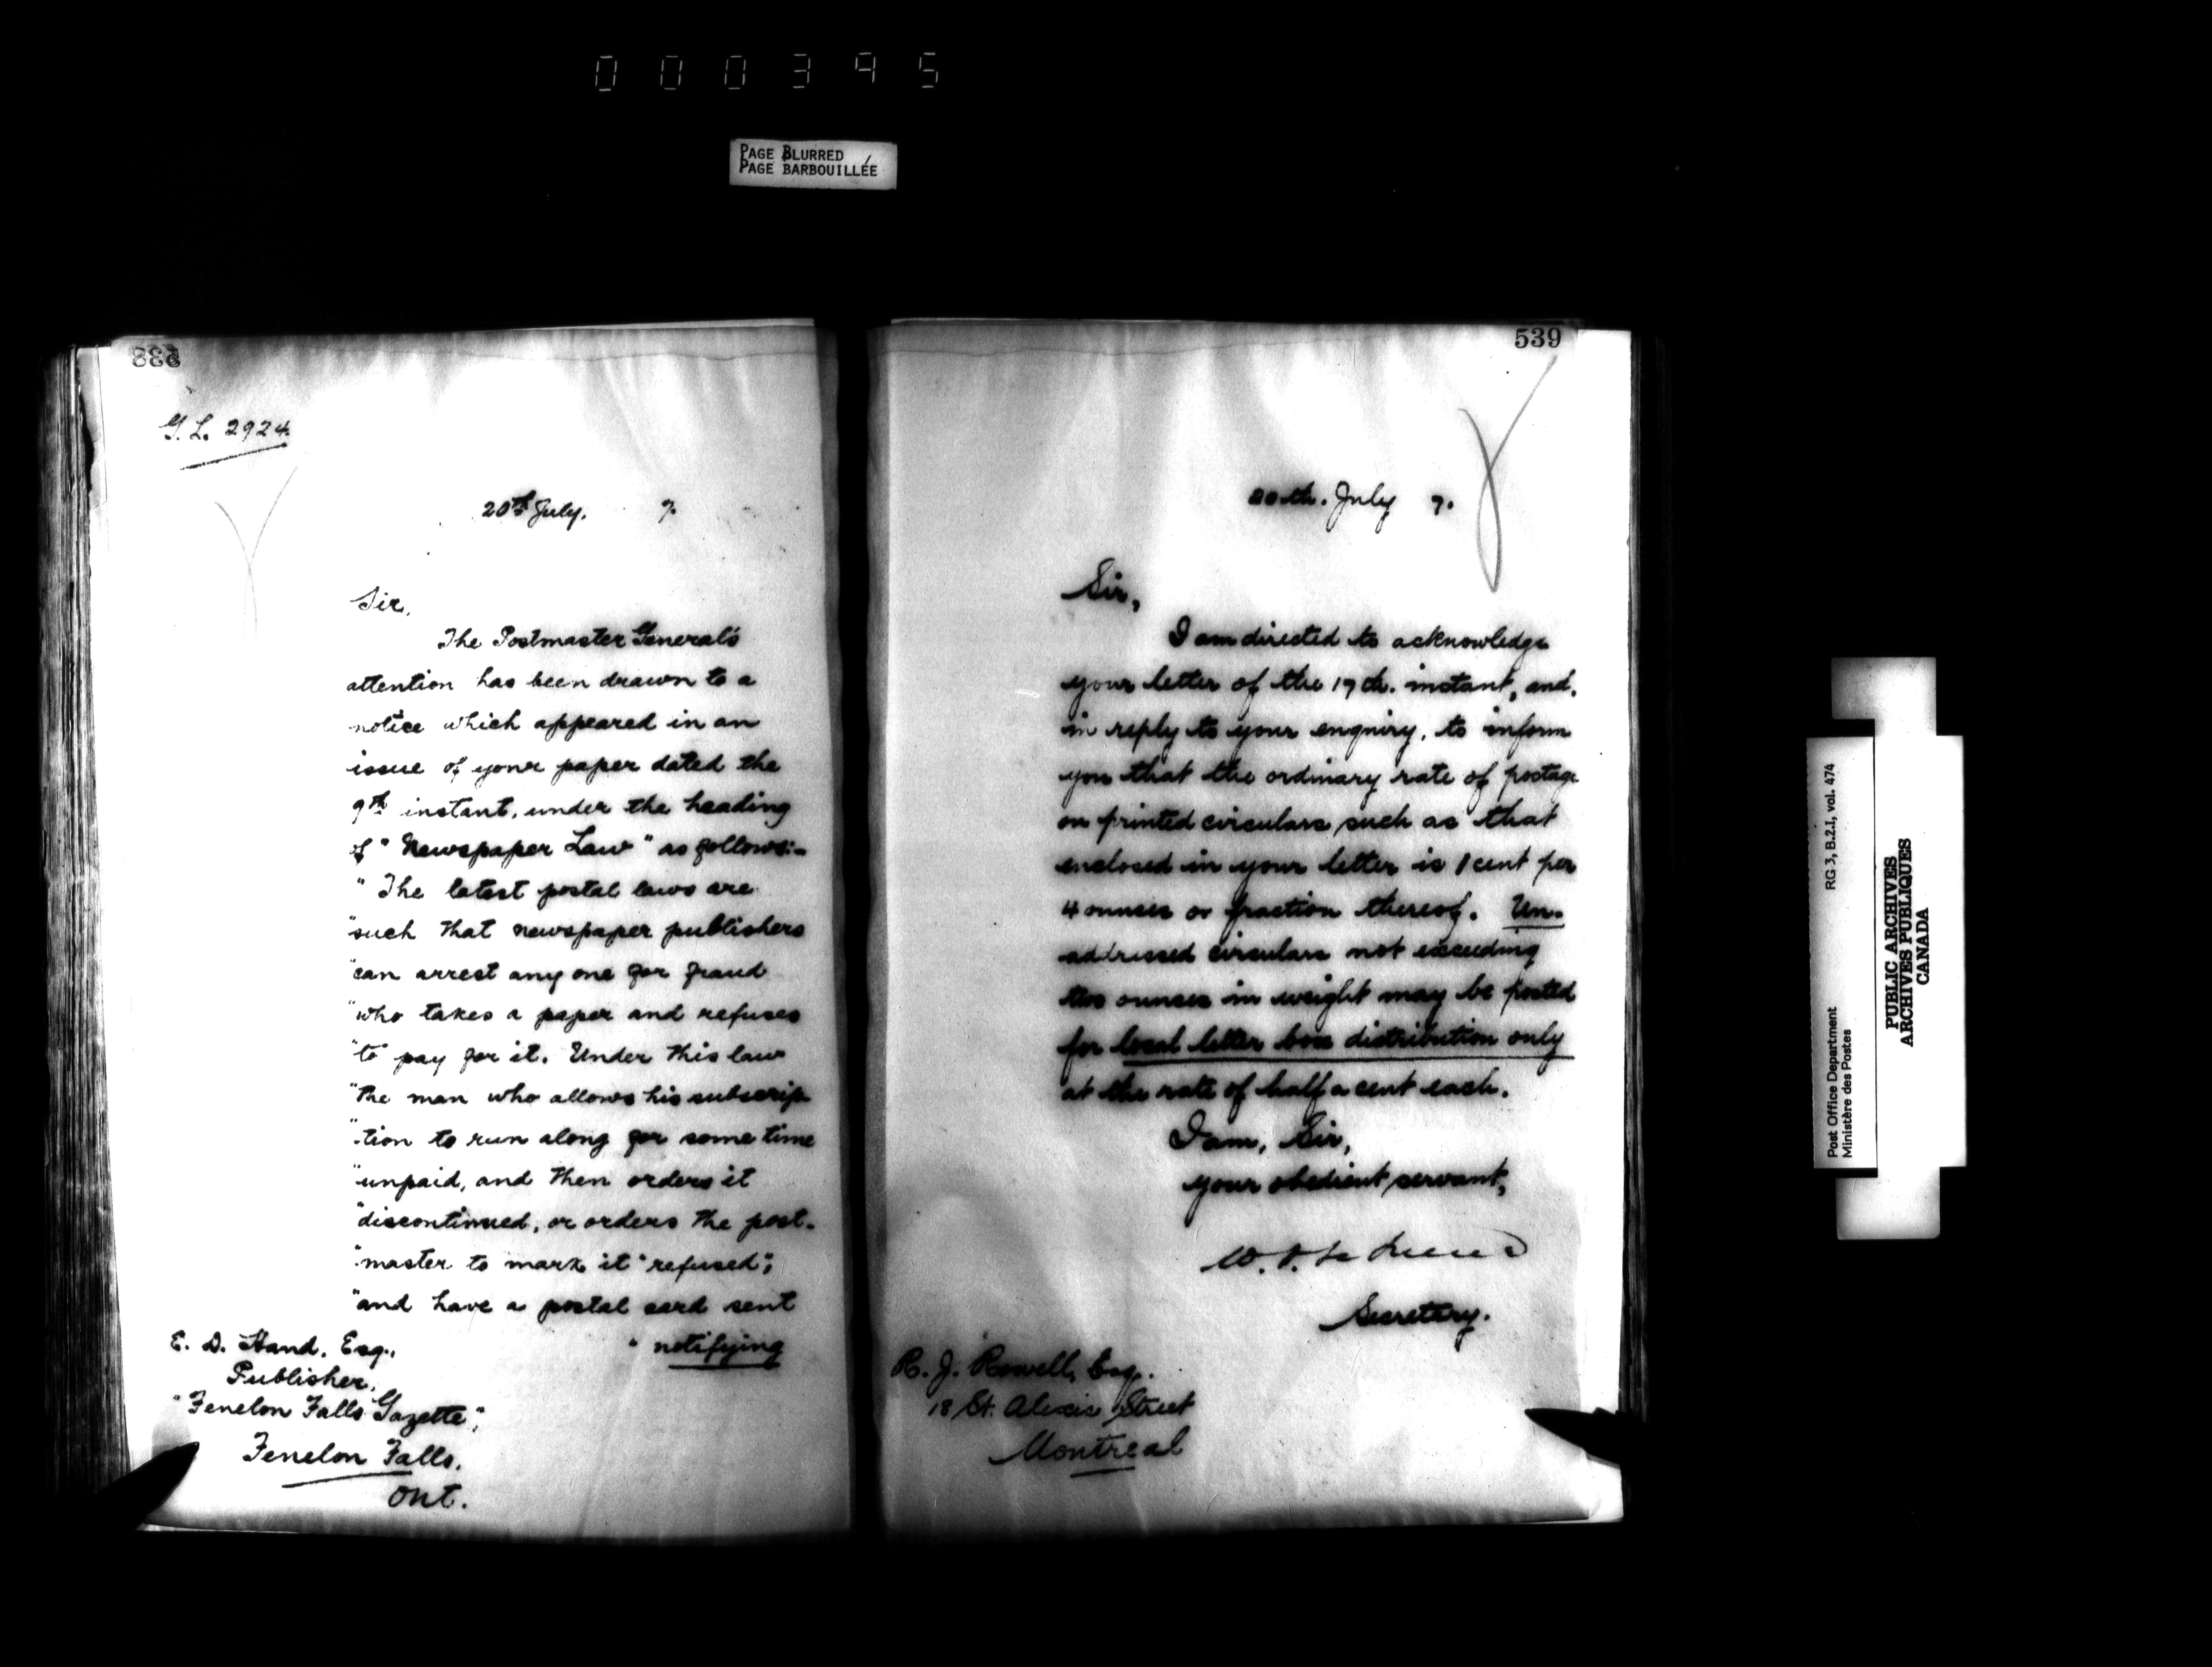 000395
PAGE BLURRED
PAGE BARBOUILLÉE
538
G. L. 2924.
20th July. 7.
Sir,
The Postmaster General's
attention has been drawn to a
notice which appeared in an
issue of your paper dated the
9th instant, under the heading
of "Newspaper Law" as follows:-
"The latest postal laws are
"such that newspaper publishers
"can arrest any one for fraud
"who takes a paper and refuses
"to pay for it. Under this law
"the man who allows his subscrip-
"tion to run along for some time
"unpaid, and then orders it
"discontinued, or orders the post-
"master to mark it "refused",
"and have a postal card sent
" notifying
E. D. Hand, Esq.,
Publisher,
"Fenelon Falls Gazette",
Fenelon Falls.
Ont.
539
20th. July 7.
Sir,
I am directed to acknowledge
your letter of the 19th. instant, and,
in reply to your enquiry, to inform
you that the ordinary rate of postage
on printed circulars such as that
enclosed in your letter is 1 cent per
4 ounces or fraction thereof. Un-
addressed circulars not exceeding
two ounces in weight may be posted
for local letter box distribution only
at the rate of half a cent each.
I am, Sir,
your obedient servant,
Secretary.
R. J. Rowell, Esq.
18 St. Alexis Street
Montreal
Post Office Department RG 3, B.2.1, vol. 474
Ministère des Postes
PUBLIC ARCHIVES
ARCHIVES PUBLIQUES
CANADA